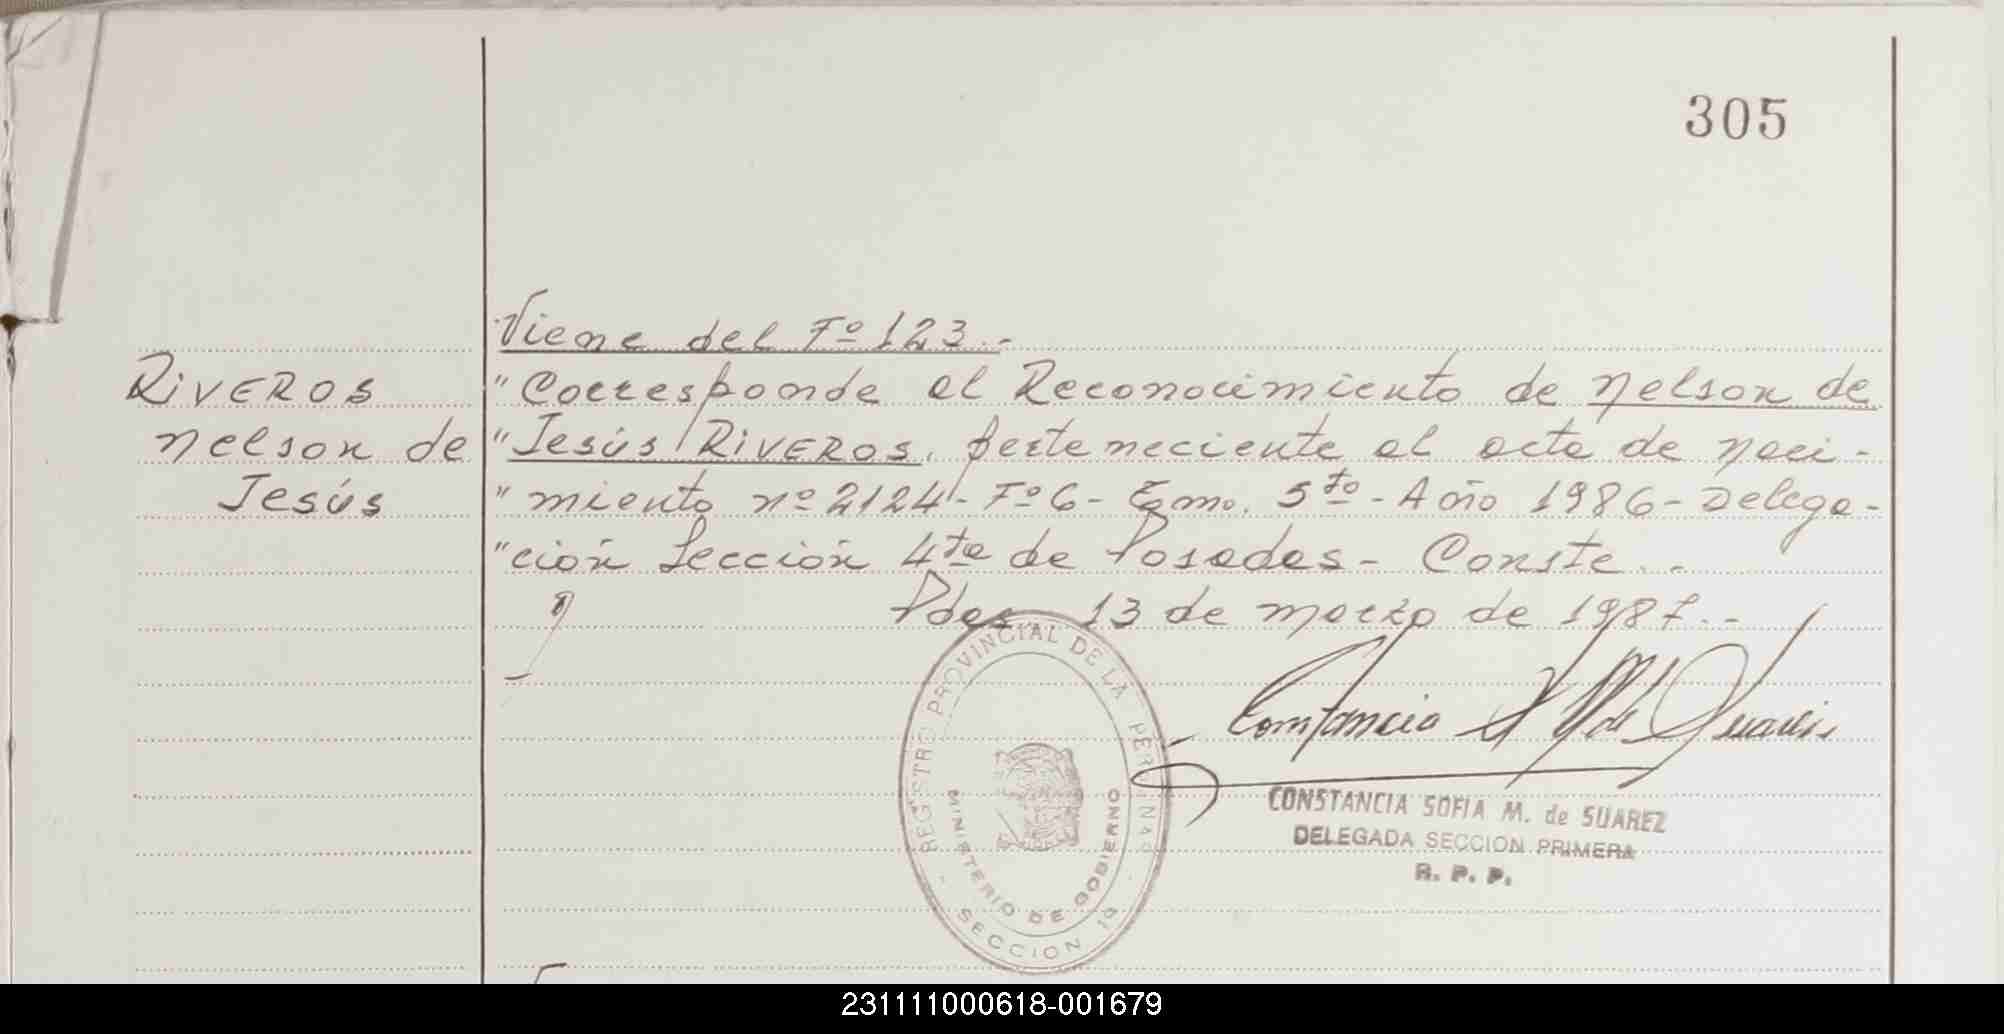 305
Viene del Fº 123.-
RIVEROS
Nelson de
Jesús
"Corresponde al Reconocimiento de Nelson de
"Jesús RIVEROS, perteneciente al acta de naci-
"miento nº 2124- Fº 6- Tomo. 5to- Año 1986- Delega-
"ción Sección 4ta de Posadas- Conste.-
Pdas 13 de marzo de 1987.-
REGISTRO PROVINCIAL DE LA PERSONAS
MINISTERIO DE GOBIERNO
- SECCION 1ª -
Constancia S M de Suarez
CONSTANCIA SOFIA M. de SUAREZ
DELEGADA SECCION PRIMERA
R. P. P.
231111000618-001679